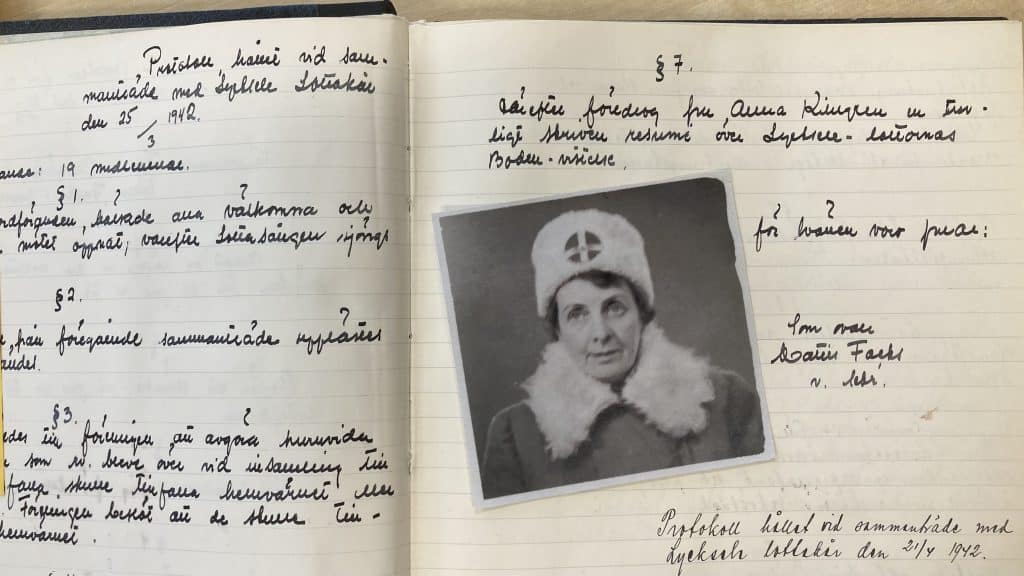 Protokoll hållet vid sam-
manträde med Lycksele Lottakår
den 25/3 1942.
ande: 19 medlemmar.
§ 1.
ordföranden, hälsade alla välkomna och
mötet öppnat, varefter Lottasången sjöngs
§ 2.
från föregående sammanträde upplästes
§ 3.
föreningen att avgöra huruvida
som ev. blev över vid insamling till
fana, skulle tillfalla hemvärnet
Föreningen beslöt att de skulle till-
hemvärnet.
§ 7.
Därefter föredrog fru Anna Kingren en trev-
ligt skriven resumé över Lycksele-lottornas
Boden-vistelse.
för kvällen var
Som ovan
v. sekr.
Protokoll hållet vid sammanträde med
Lycksele lottakår den 21/4 1942.